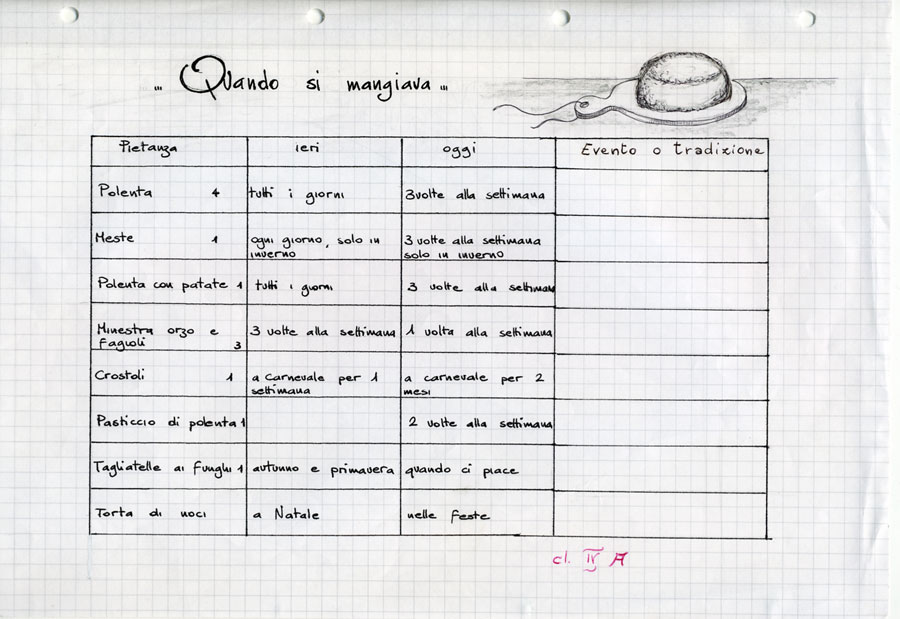 ... Quando si mangiava ...
Pietanza ieri oggi Evento o tradizione
Polenta 4 tutti i giorni 3 volte alla settimana
Meste 1 ogni giorno, solo in inverno 3 volte alla settimana solo in inverno
Polenta con patate 1 tutti i giorni 3 volte alla settimana
Minestra orzo e fagioli 3 3 volte alla settimana 1 volta alla settimana
Crostoli 1 a carnevale per 1 settimana a carnevale per 2 mesi
Pasticcio di polenta 1 2 volte alla settimana
Tagliatelle ai funghi 1 autunno e primavera quando ci piace
Torta di noci a Natale nelle feste
cl. IV A